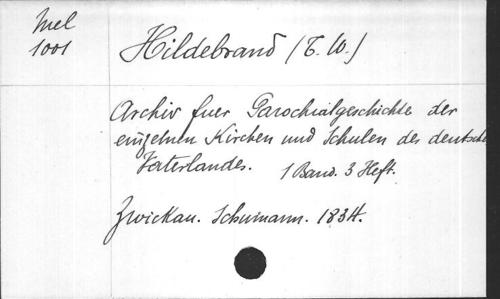 Mel
1001
Hildebrand (T. W.)
Archiv fuer Parochialgeschichte der
einzelnen Kirchen und Schulen des deutsche
Vaterlandes. 1 Band. 3 Heft.
Zwickau. Schumann. 1834.